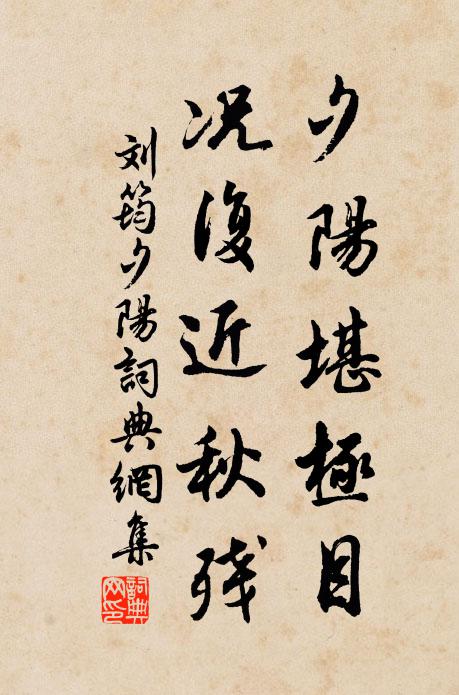 夕陽堪極目
况復近秋残
刘筠夕陽詞典網集
詞典網印